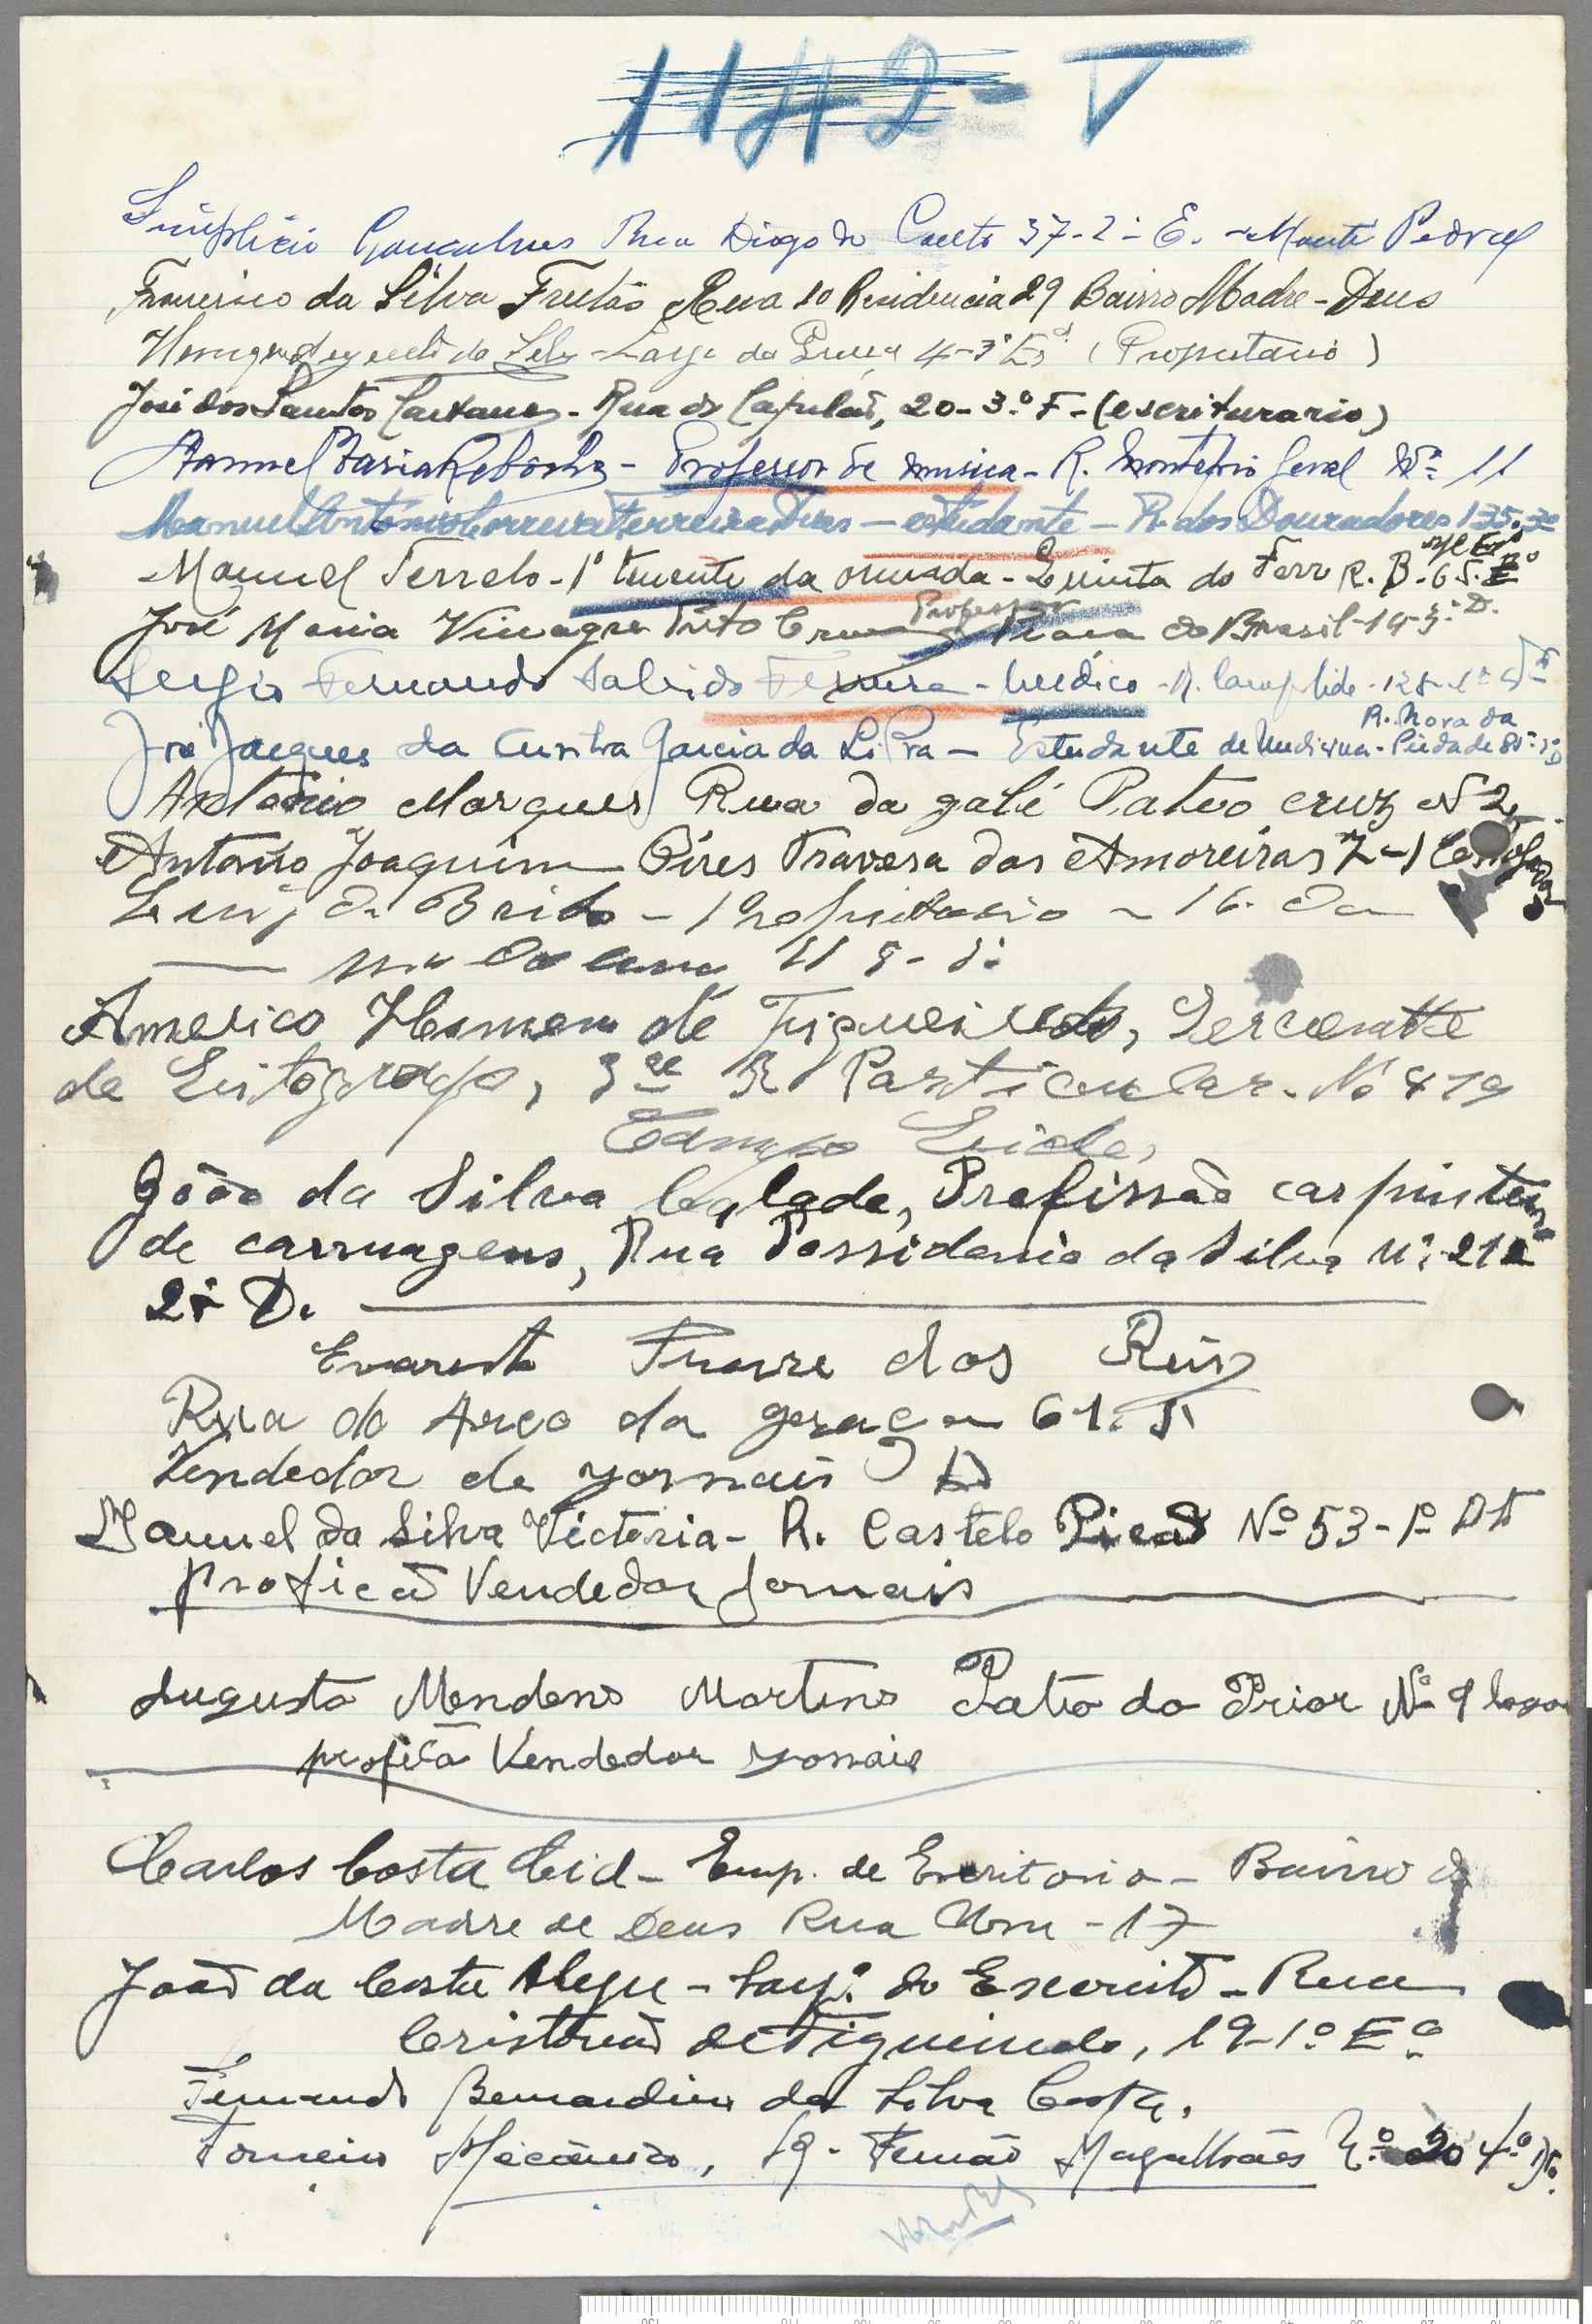 1142 - V
Simplicio Gonçalves Rua Diogo do Couto 37-2º-E. - Monte Pedral
Francisco da Silva Frutão Rua 10 Residencia 29 Bairro Madre-Deus
4-3º (Propietario)
José dos Santos Caetano - Rua do Capelão, 20-3.º F - (escriturario)
Manuel Faria Reboxo - Professor de musica - R. Montepio Geral Nº 11
Manuel António Correia Ferreira Dias - estudante - R. dos Douradores 135-3º
Manuel Ferrelo - 1º tenente da armada - Quinta do Ferro R. B. - 65.
José Maria Vinagre Professor Praça do Brasil - 14-3º D.
Sergio Fernando Sabido Ferreira - Medico - R. Campolide - 128-1º
R. Nova da
José Jacques da Cunha Garcia da Lipra - Estudante de Medicina - Piedade
António Marques Rua da galé Pateo cruz Nº 2
Antonio Joaquim Pires Travesa das Amoreiras 7-1
Luiz de Brito - Propietario - 16.
Americo Homem de Figueiredo, Sercente
de Litografo, 3ª R Particular. Nº 419
Campo Lide,
João da Silva Calado, Profissão carpinteiro
de carruagens, Rua Possidonio da Silva nº 212
2º D.
Evaristo Freire dos Reis
Rua do Arco da graça 61.
Vendedor de yornais
Manuel da Silva Victoria - R. Castelo Picão Nº 53-1º Dt
proficão Vendedor Jornais
Augusto Mendens Martins Patio do Prior Nº 9
profisã Vendedor yornais
Carlos Costa Cid - Emp. de Escritorio - Bairro da
Madre de Deus Rua Um - 17
João da Costa Alegre - Sarg.º do Exercito - Rua
Cristovão de Figueiredo, 19-1º Eº
Fernando Bernardino da Silva Costa,
Torneiro Mecânico, Fernão Magalhães Nº 20 4º Dtº.